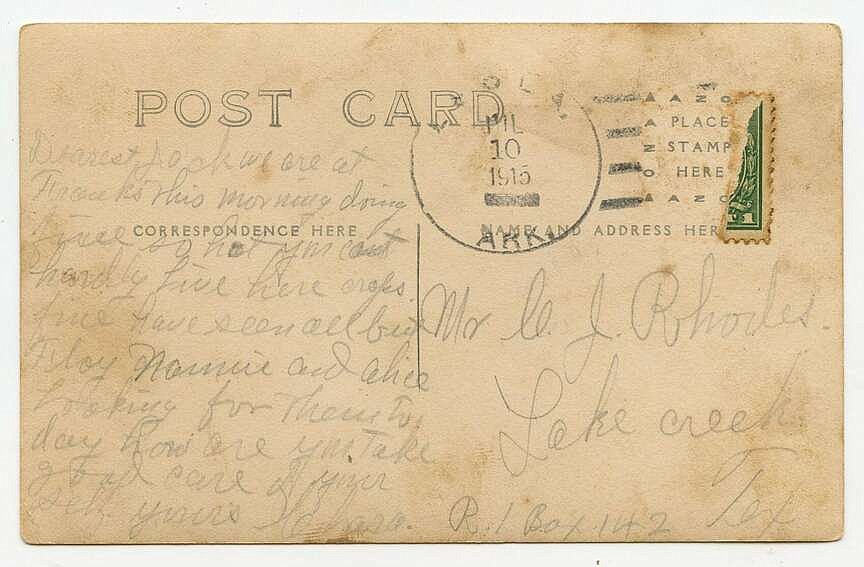 POST CARD
Dearest Jack we are at
Franks this morning doing
fine so hot you cant
hardly live here crops
fine have seen all but
Floy Nannie and alice
Looking for them to
day how are you take
good care of your
self. yours Clara.
CORRESPONDENCE HERE
JUL
10
1915
ARK.
AZO
PLACE
STAMP
HERE
AZO
1
NAME AND ADDRESS HERE
Mr C. J. Rhodes.
Lake creek.
Tex
R. 1 Box 142